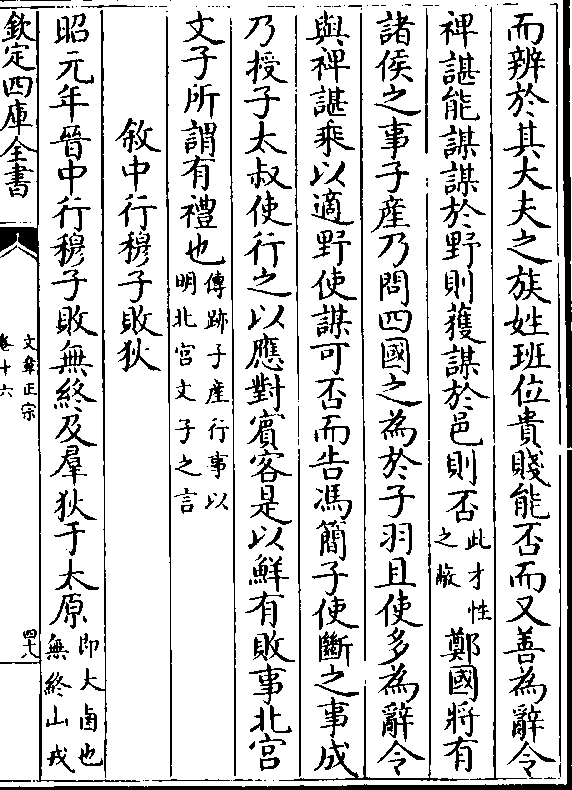 而辨於其大夫之族姓班位貴賤能否而又善為辭令
裨諶能謀謀於野則獲謀於邑則否此才性之蔽鄭國將有
諸侯之事子產乃問四國之為於子羽且使多為辭令
與裨諶乘以適野使謀可否而告馮簡子使斷之事成
乃授子太叔使行之以應對賓客是以鮮有敗事北宮
文子所謂有禮也傳跡子產行事以明北宮文子之言
敘中行穆子敗狄
昭元年晉中行穆子敗無終及羣狄于太原即大鹵也無終山戎
欽定四庫全書
文章正宗
卷十六
四八